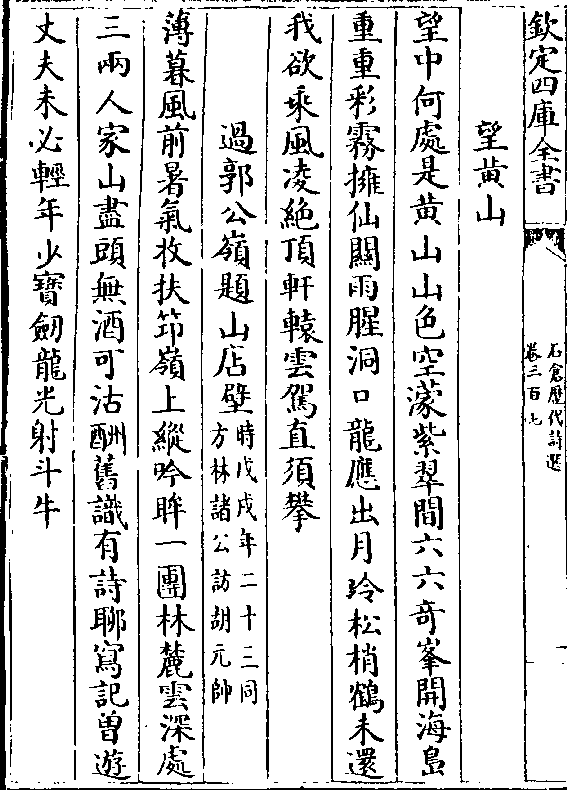 欽定四庫全書
石倉歴代詩選
卷三百七
望黄山
望中何處是黄山山色空濛紫翠間六六奇峯開海島
重重彩霧擁仙關雨腥洞口龍應出月玲松梢鶴未還
我欲乘風凌絶頂軒轅雲駕直須攀
過郭公嶺題山店壁時戊戌年二十二同
方林諸公訪胡元帥
薄暮風前暑氣收扶笻嶺上縱吟眸一團林麓雲深處
三兩人家山盡頭無酒可沽酬舊識有詩聊寫記曽遊
丈夫未必輕年少寶劒龍光射斗牛